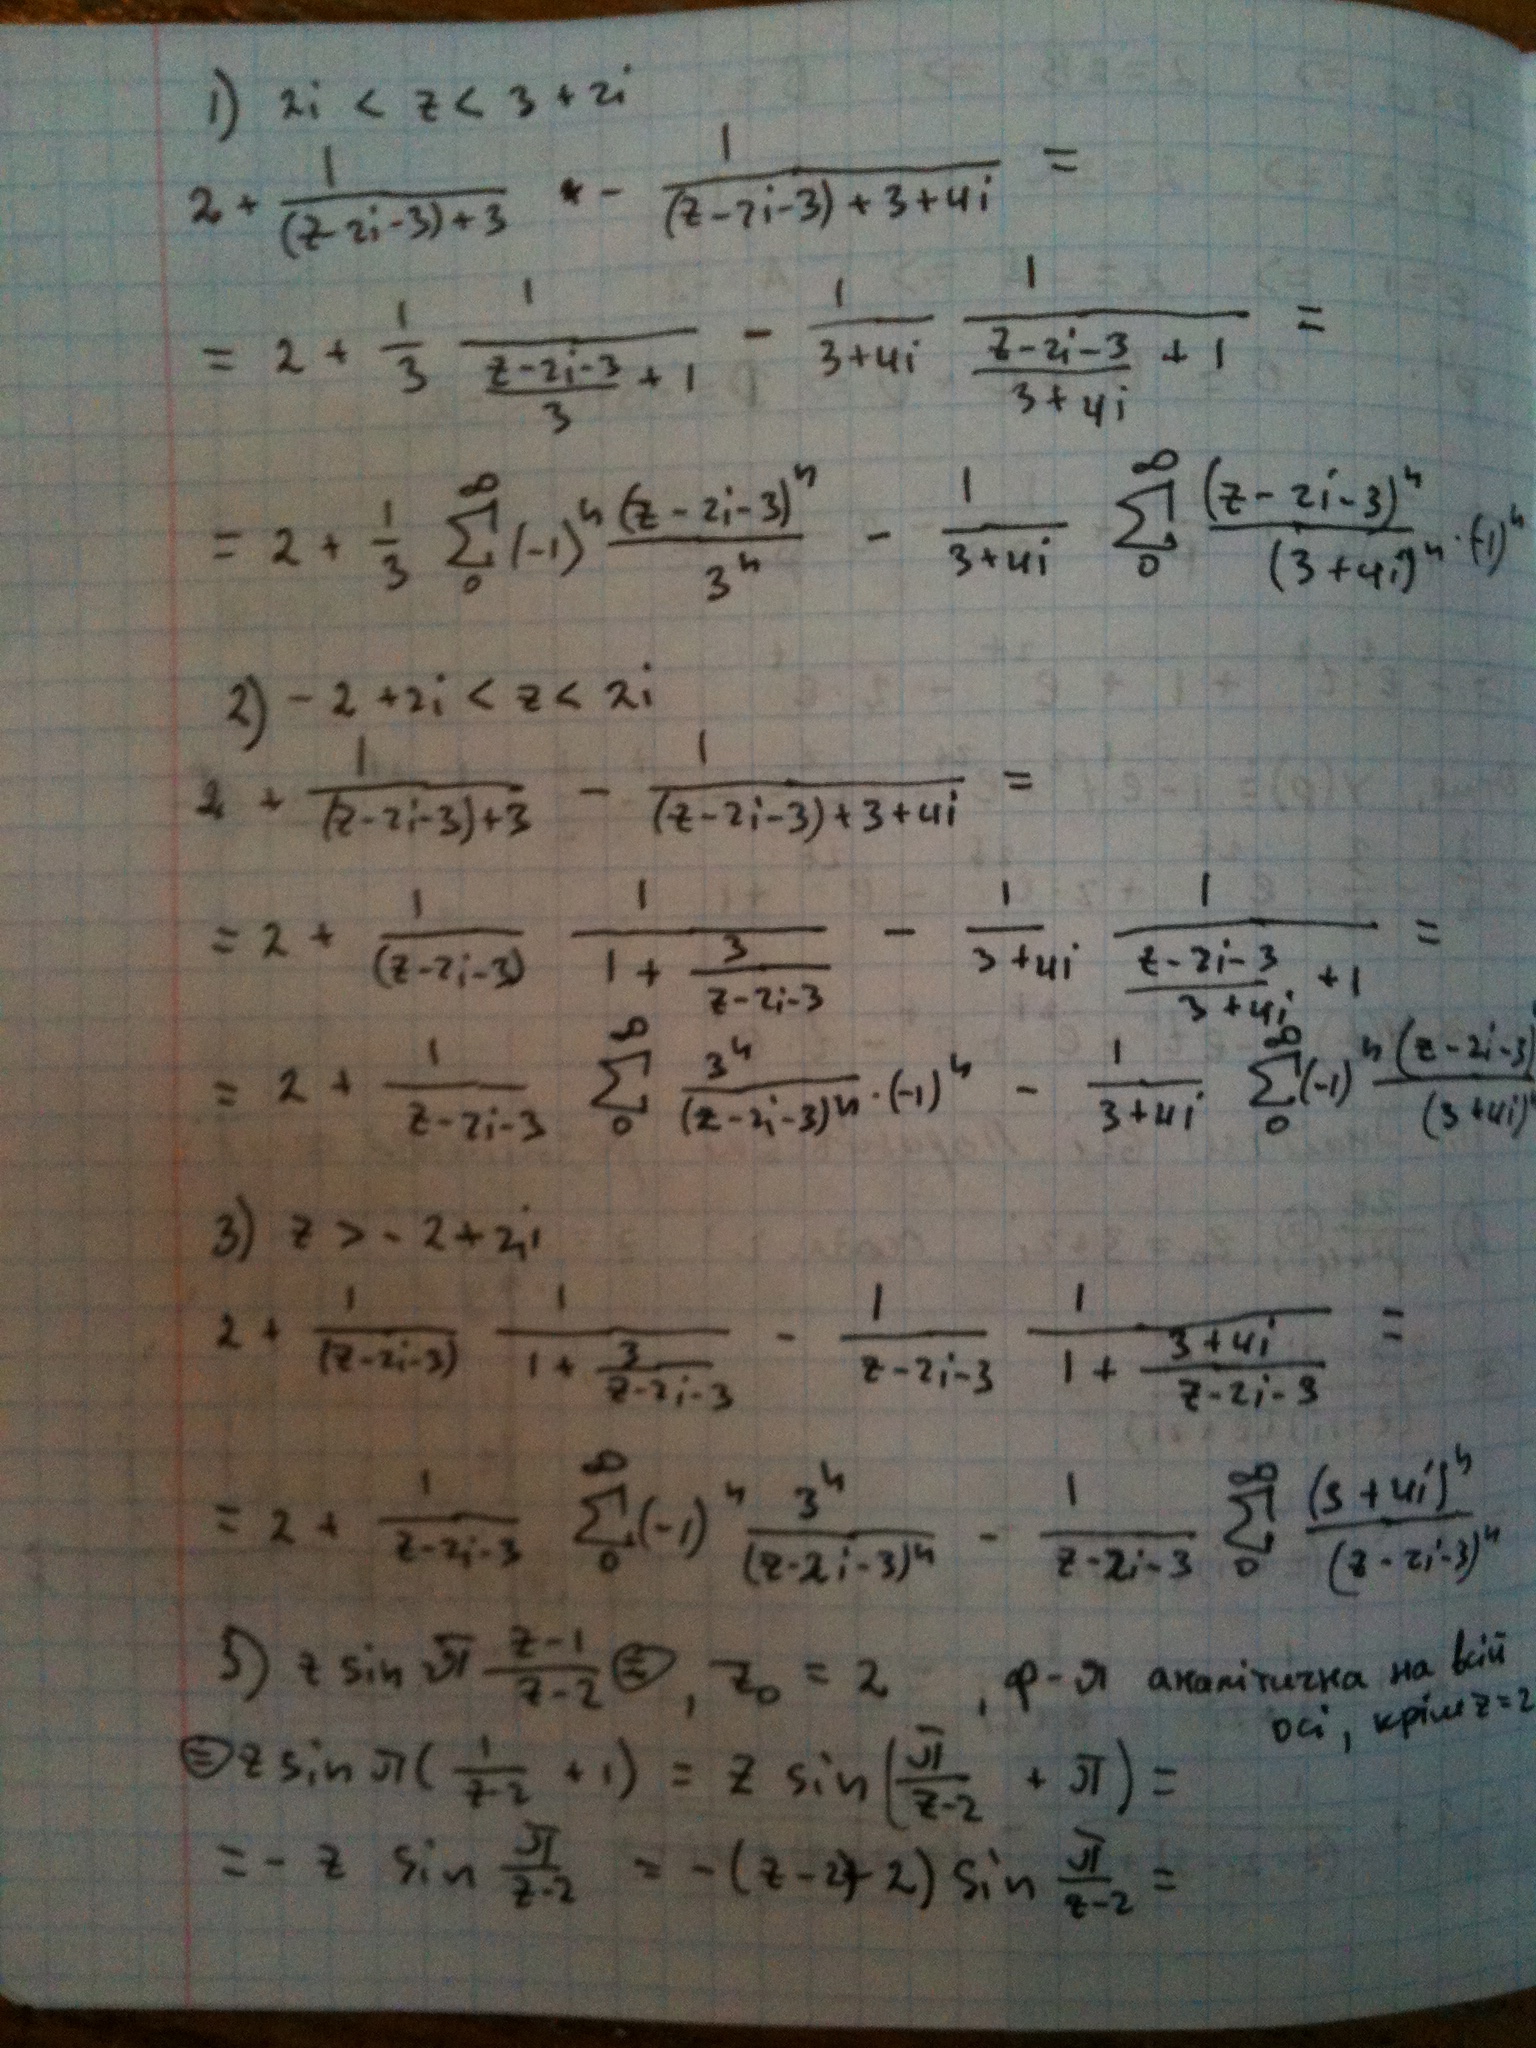 1) 2i < z < 3 + 2i
2 + \frac{1}{(z-2i-3)+3} - \frac{1}{(z-2i-3)+3+4i} =
= 2 + \frac{1}{3} \frac{1}{\frac{z-2i-3}{3}+1} - \frac{1}{3+4i} \frac{1}{\frac{z-2i-3}{3+4i}+1} =
= 2 + \frac{1}{3} \sum_{0}^{∞} (-1)^n \frac{(z-2i-3)^n}{3^n} - \frac{1}{3+4i} \sum_{0}^{∞} \frac{(z-2i-3)^n}{(3+4i)^n} · (-1)^n
2) -2+2i < z < 2i
2 + \frac{1}{(z-2i-3)+3} - \frac{1}{(z-2i-3)+3+4i} =
= 2 + \frac{1}{(z-2i-3)} \frac{1}{1+\frac{3}{z-2i-3}} - \frac{1}{3+4i} \frac{1}{\frac{z-2i-3}{3+4i}+1} =
= 2 + \frac{1}{z-2i-3} \sum_{0}^{∞} \frac{3^n}{(z-2i-3)^n} · (-1)^n - \frac{1}{3+4i} \sum_{0}^{∞} (-1)^n \frac{(z-2i-3)}{(3+4i)^n}
3) z > -2+2i
2 + \frac{1}{(z-2i-3)} \frac{1}{1+\frac{3}{z-2i-3}} - \frac{1}{z-2i-3} \frac{1}{1+\frac{3+4i}{z-2i-3}} =
= 2 + \frac{1}{z-2i-3} \sum_{0}^{∞} (-1)^n \frac{3^n}{(z-2i-3)^n} - \frac{1}{z-2i-3} \sum_{0}^{∞} \frac{(3+4i)^n}{(z-2i-3)^n}
5) z sin π \frac{z-1}{z-2} ⊜, z_0 = 2, ф-я аналітична на всій
осі, крім z=2
⊜ z sin π(\frac{1}{z-2} + 1) = z sin(\frac{π}{z-2} + π) =
= - z sin \frac{π}{z-2} = -(z-2+2) sin \frac{π}{z-2} =